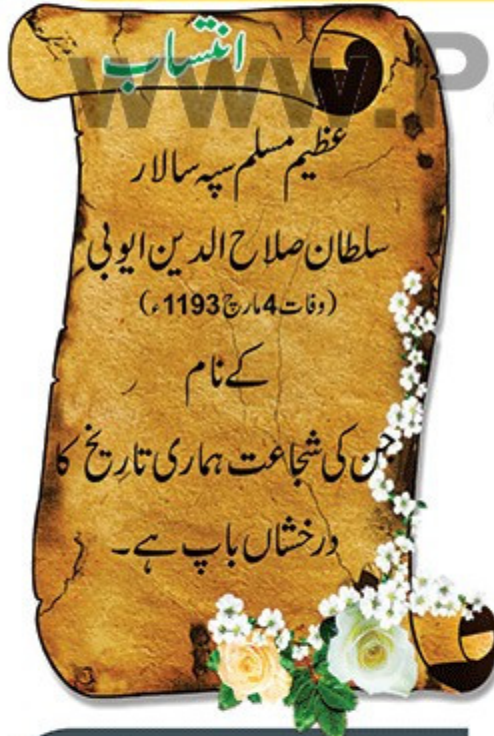 انتساب
WWW.P
عظیم مسلم سپہ سالار
سلطان صلاح الدین ایوبی
(وفات 4 مارچ 1193ء)
کے نام
جن کی شجاعت ہماری تاریخ کا
درخشاں باپ ہے۔